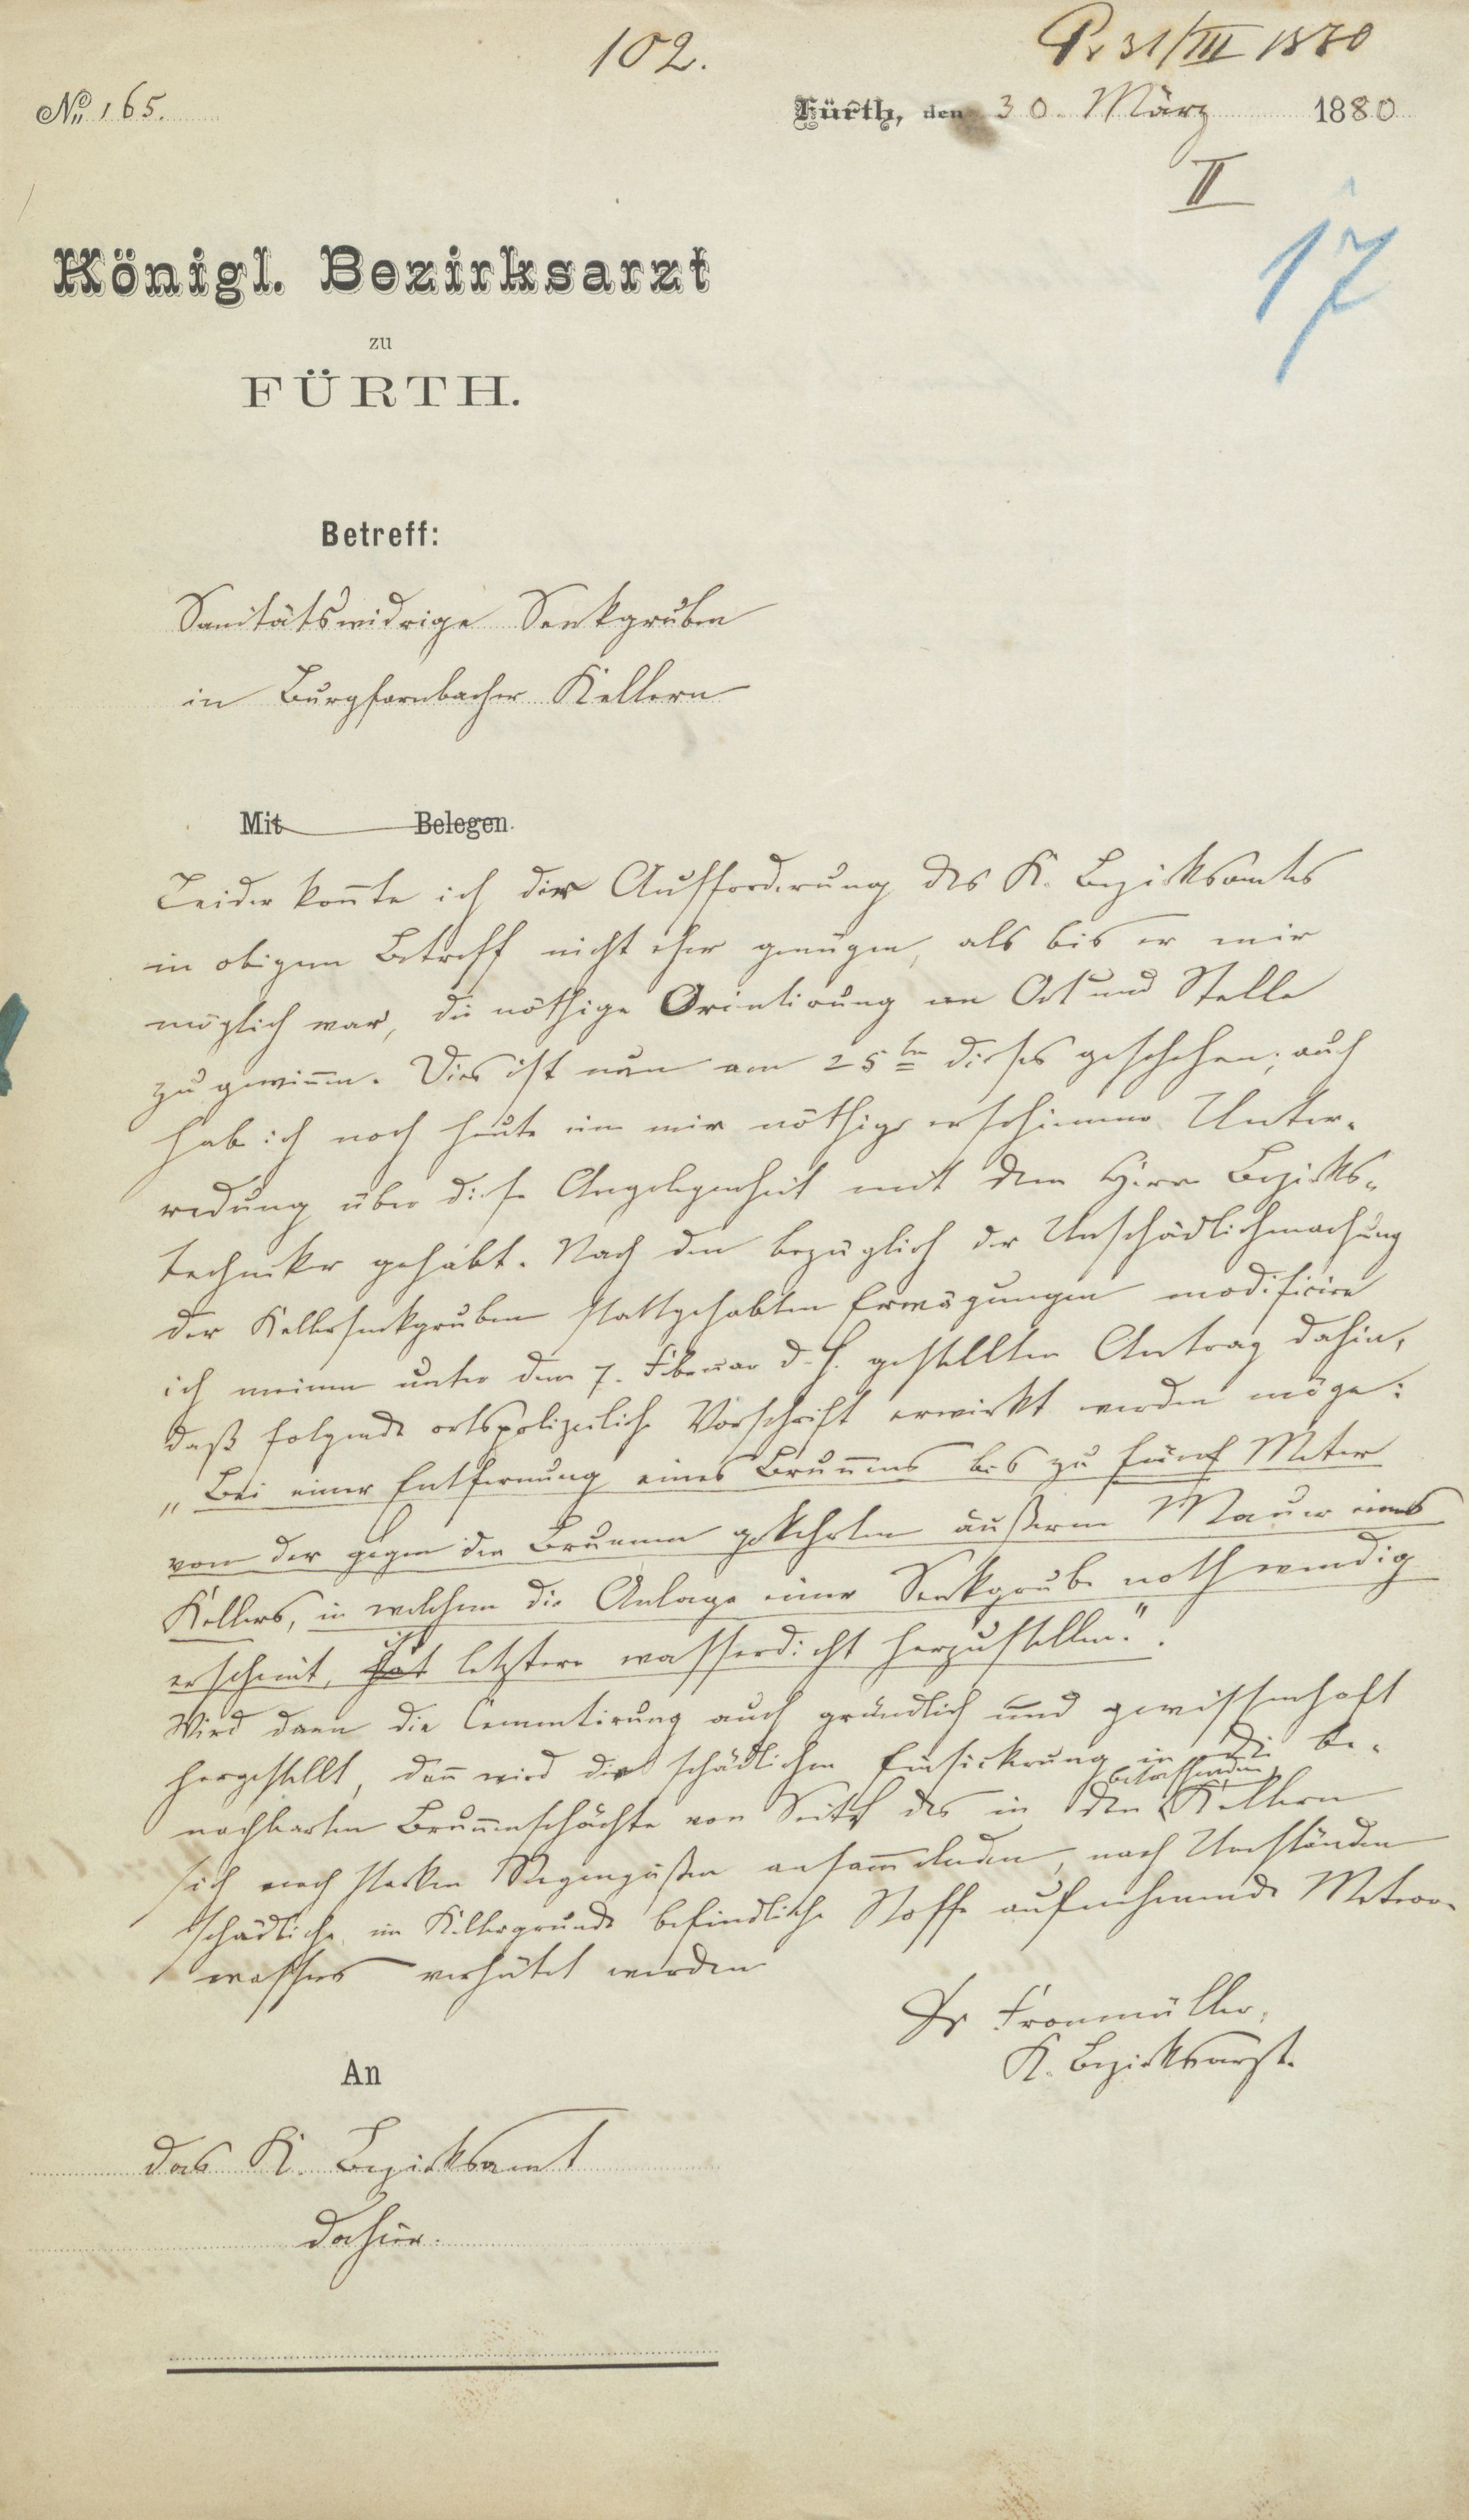 102.
Pr 31/III 1880
No 165.
Fürth, den 30. März 1880
II
17
Königl. Bezirksarzt
zu
FÜRTH.
Betreff:
Sanitätswidrige Senkgruben
in Burgfarnbacher Kellern
Mit Belegen.
Leider kon̄te ich der Aufforderung des K. Bezirksamtes
in obigem Betreff nicht eher genügen, als bis er mir
möglich war, die nöthige Orientirung an Ort und Stelle
zu gewin̄en. Dies ist nun am 25ten dieses geschehen; auch
hab ich noch heute eine mir nöthig erschienene Unter-
redung über diese Angelegenheit mit dem Herrn Bezirks-
techniker gehabt. Nach den bezüglich der Unschädlichmachung
der Kellersenkgruben stattgehabten Erwägungen modificire
ich meinen unter dem 7. Februar d. J. gestellten Antrag dahin,
daß folgende ortspolizeiliche Vorschrift erwirkt werden möge:
„Bei einer Entfernung eines Brun̄ens bis zu fünf Meter
von der gegen den Brunnen gekehrten äußeren Mauer eines
Kellers, in welchem die Anlage einer Senkgrube nothwendig
erscheint, hat ist letztere wasserdicht herzustellen.".
Wird dann die Cementirung auch gründlich und gewissenhaft
hergestellt, dan̄ wird die schädlichen Einsickerung in die be-
nachbarten Brun̄enschächte von Seite des in den betreffenden Kellern
sich nach starken Regengüßen ansam̄elnden, nach Umständen
schädliche im Kellergrunde befindliche Stoffe aufnehmende Meteor-
wassers verhütet werden
Dr Fronmüller,
K. Bezirksarzt.
An
das K. Bezirksamt
dahier.